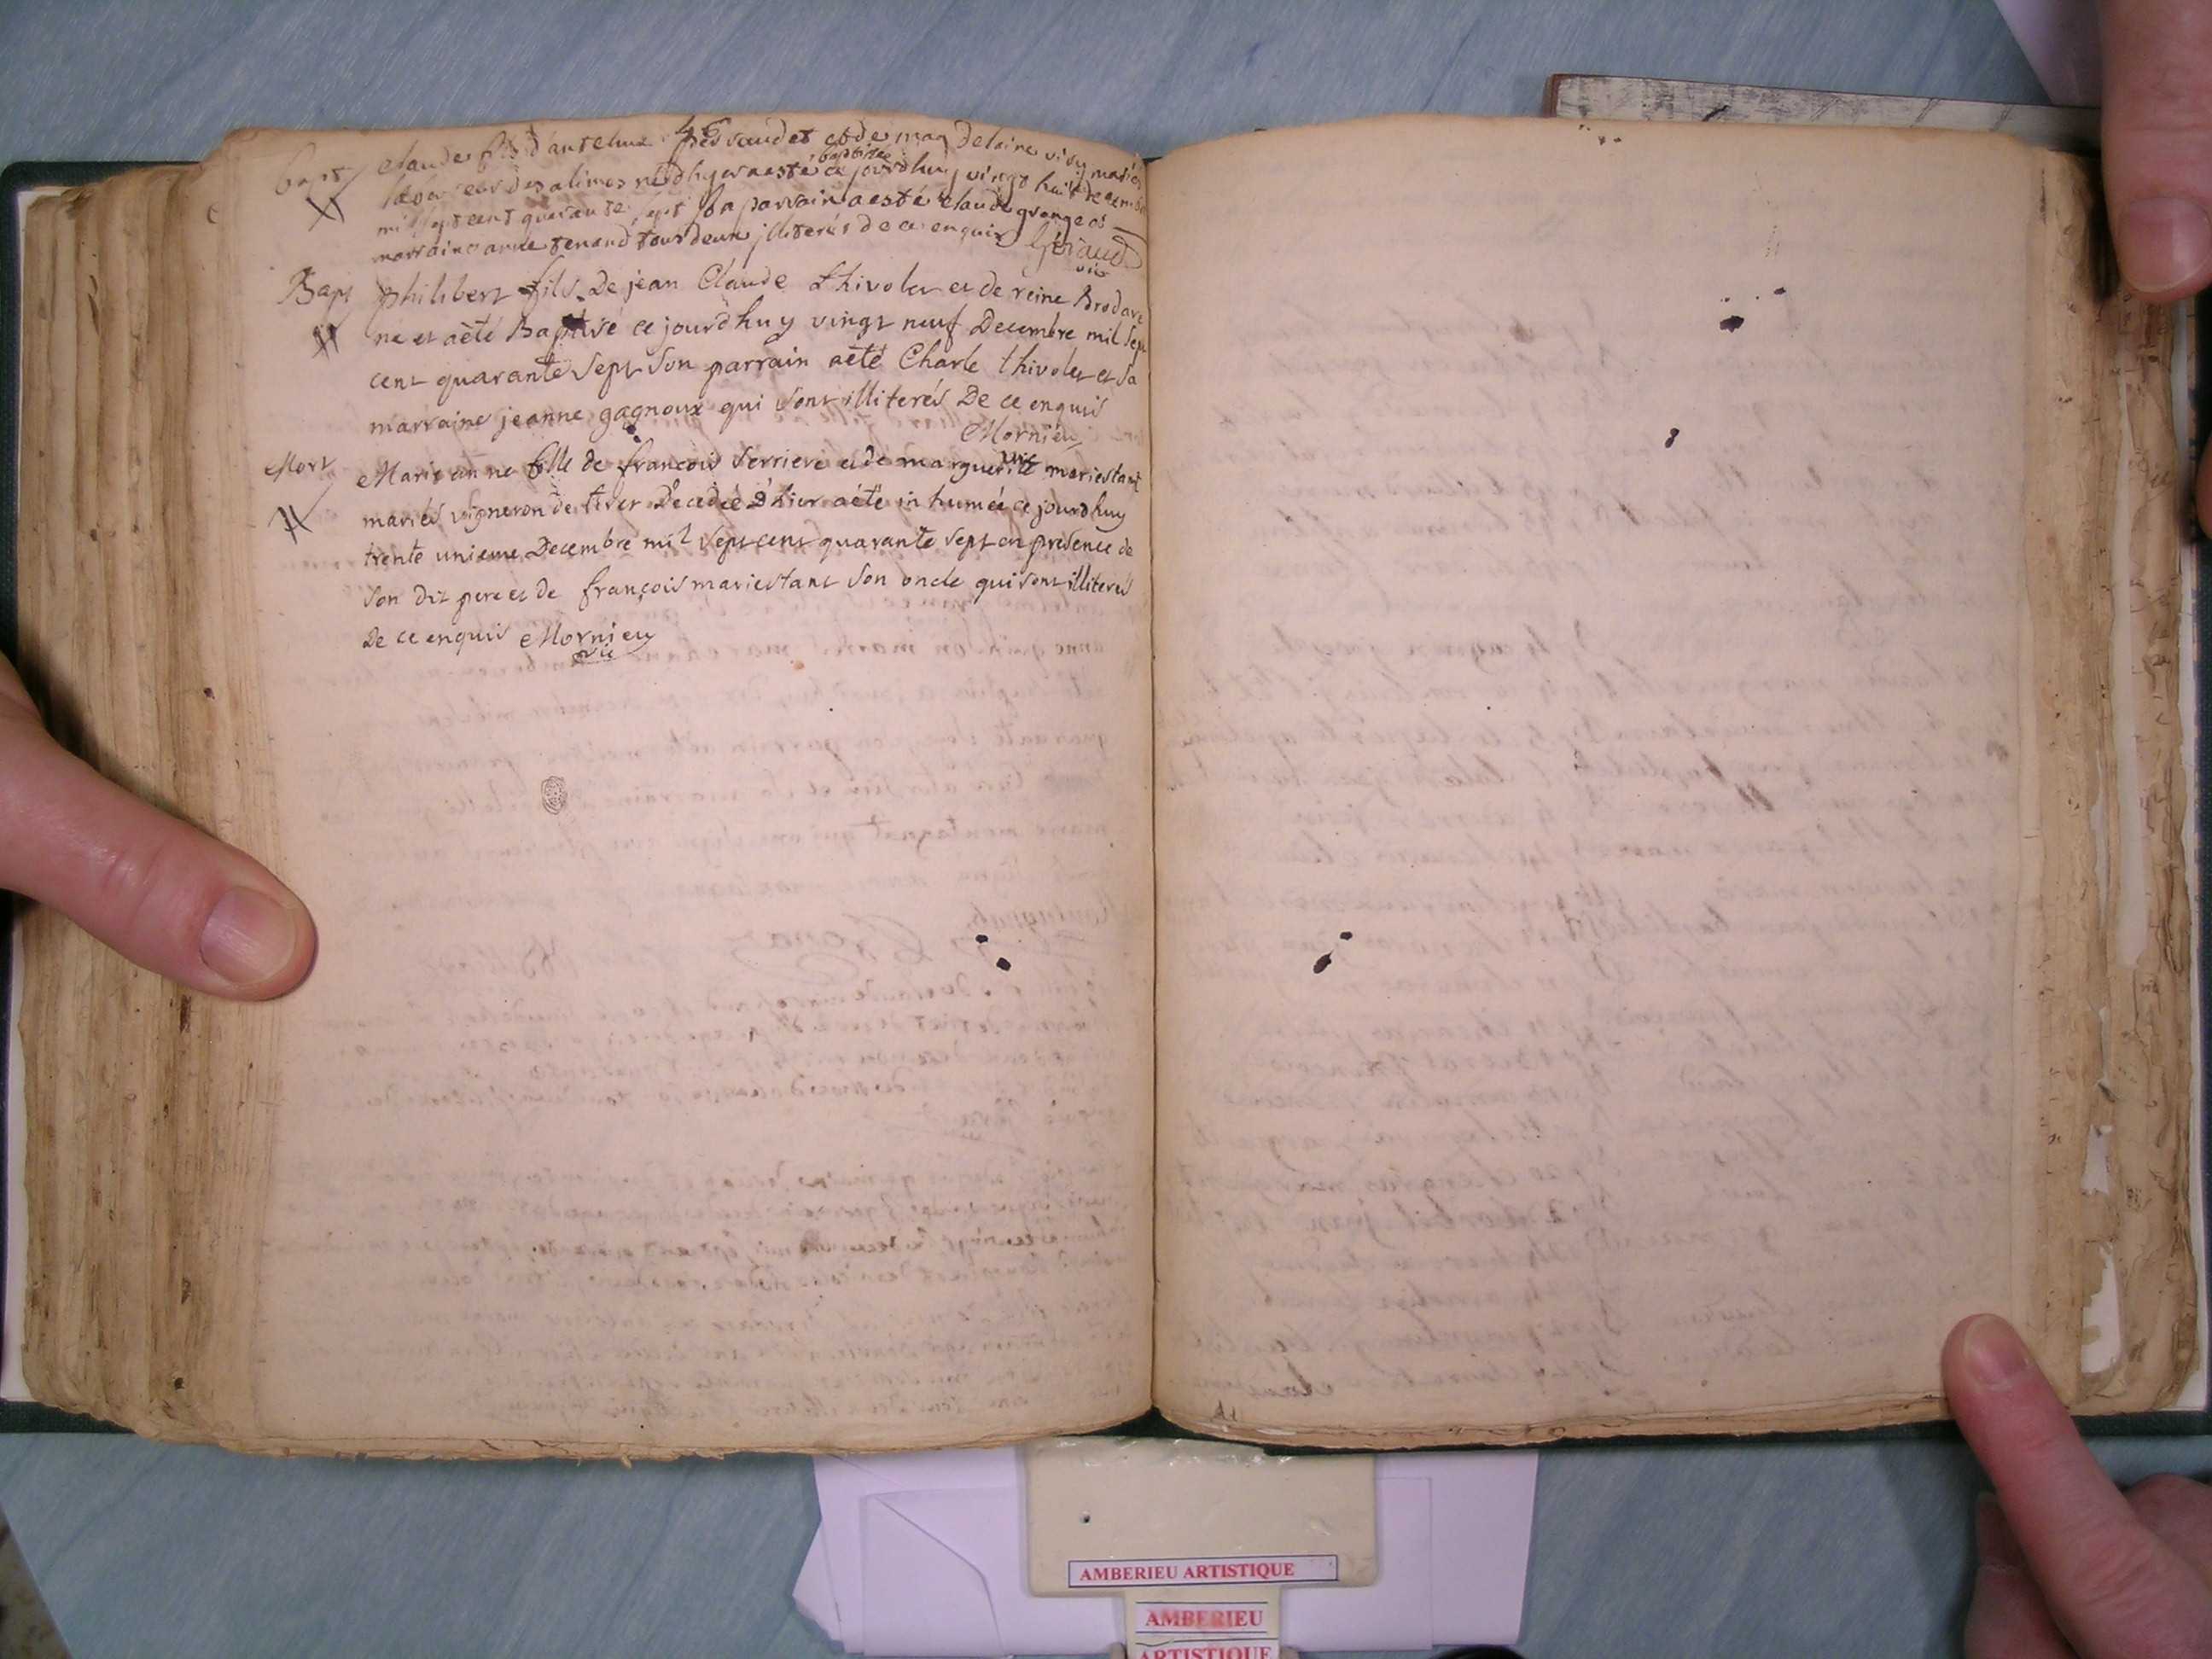 46
bapt claude fils d'antelme pervaudet et de magdelaine visy mariés
laboureur des alimes né d'hyer a esté baptisée ce jourdhuy vingt huit decembre
mil sept cent quarante sept son parrain a esté claude grangeos
marraine anne tenand tous deux jlliterés de ce enquis Géraud
vic
Bapt philibert fils De jean Claude thivolet et de reine Brodare
né et aèté Baptisé ce jourdhuy vingt neuf Decembre mil sept
cent quarante sept son parrain aèté Charle thivolet et sa
marraine jeanne gagnoux qui sont illiterés De ce enquis
Mornieu
vic
Mort Marie anne fille de francois serriere et de marguerite mariestant
mariés vigneron de tiret Décedée D'hier aèté inhumée ce jourdhuy
trente unieme Decembre mil sept cent quarante sept en presence de
son dit pere et de françois mariestant son oncle qui sont illiterés
De ce enquis Mornieu
vic
AMBERIEU ARTISTIQUE
AMBERIEU
ARTISTIQUE